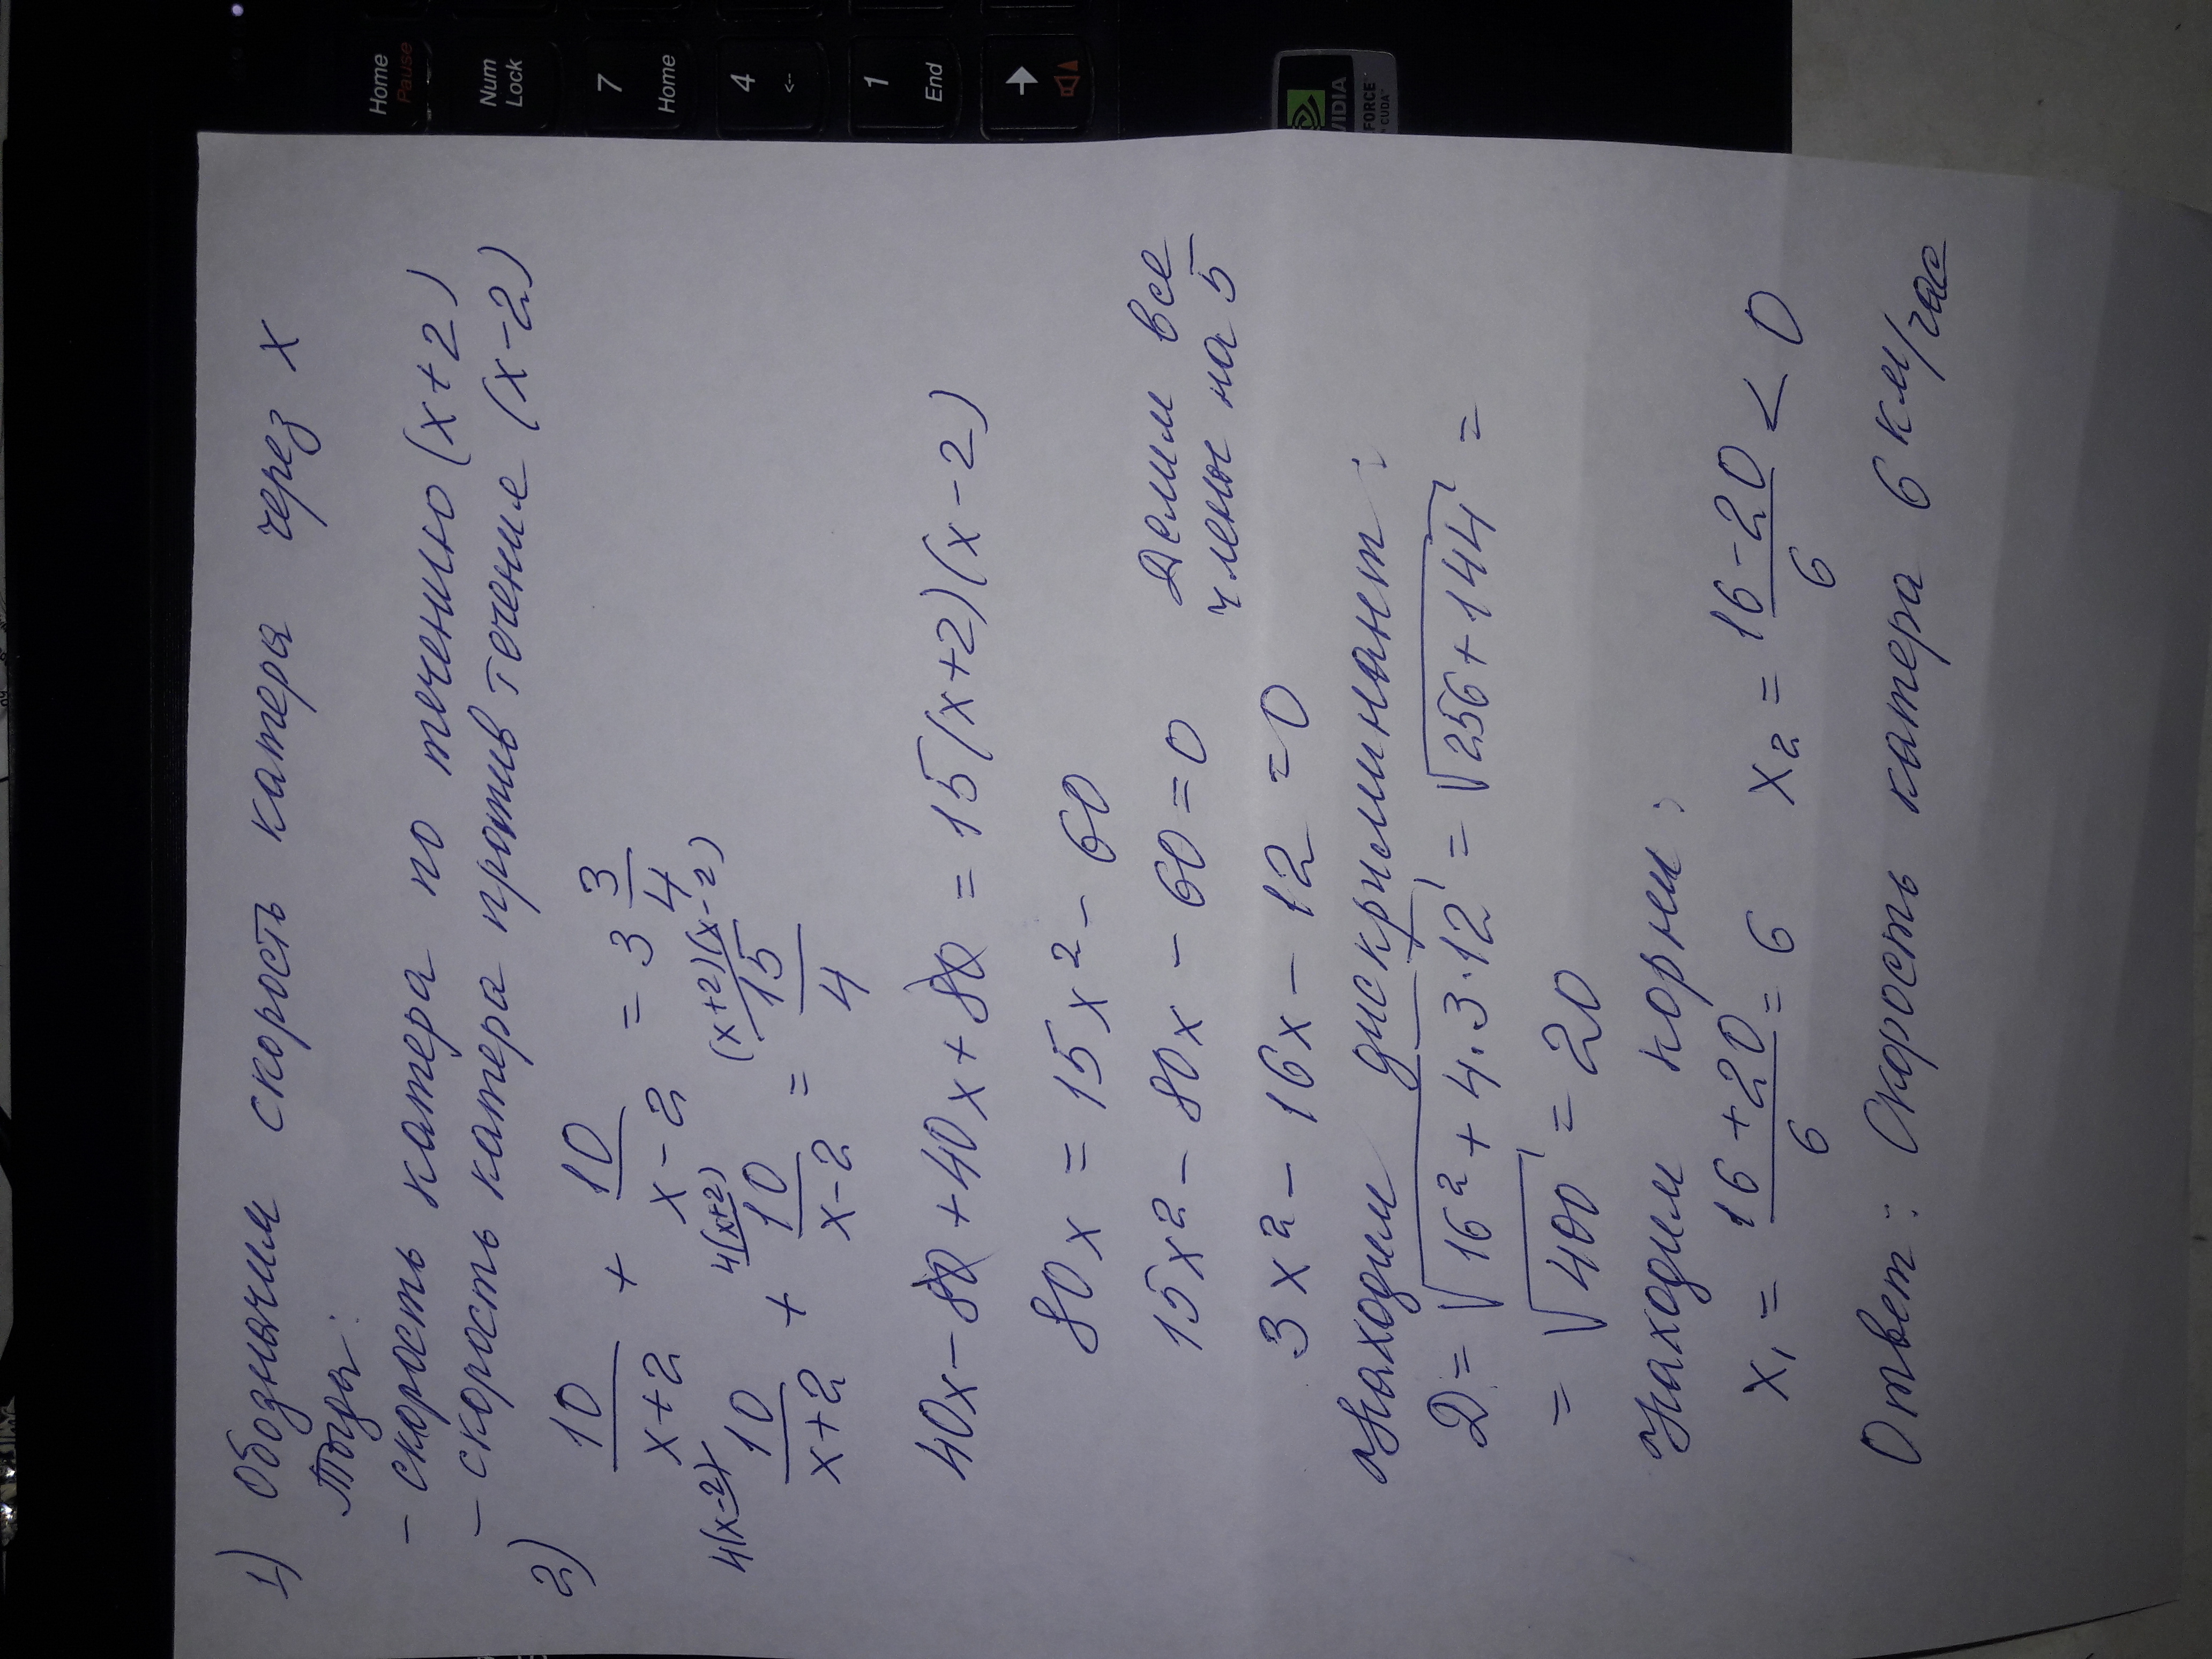 Home
Pause
Num
Lock
7
Home
4
<--
1
End
NVIDIA
FORCE
CUDA
1) Обозначим скорость катера через x
Тогда:
- скорость катера по течению (x+2)
- скорость катера против течение (x-2)
2) 10/(x+2) + 10/(x-2) = 3 3/4
4(x-2) 4(x+2) (x+2)(x-2)
10/(x+2) + 10/(x-2) = 15/4
40x-80+40x+80 = 15(x+2)(x-2)
80x = 15x² - 60
15x² - 80x - 60 = 0 Делим все
члены на 5
3x² - 16x - 12 = 0
Находим дискриминант:
D = √16² + 4·3·12 = √256+144 =
= √400 = 20
Находим корни:
x₁ = (16+20)/6 = 6 x₂ = (16-20)/6 < 0
Ответ: Скорость катера 6 км/час